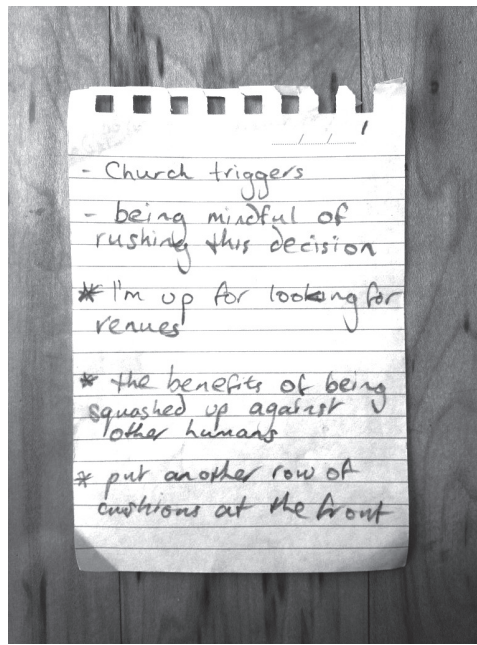 - Church triggers
- being mindful of
rushing this decision
* I'm up for looking for
venues
* the benefits of being
squashed up against
other humans
* put another row of
cushions at the front